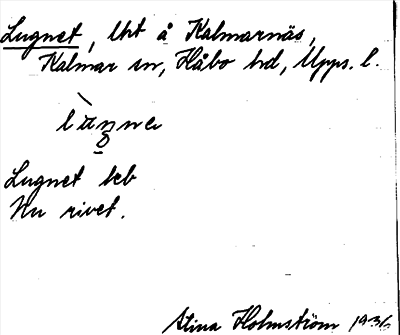 Lugnet, lht å Kalmarnäs,
Kalmar sn, Håbo hd, Upps. l.
Lugnet beb
Nu rivet.
Stina Holmström 1936